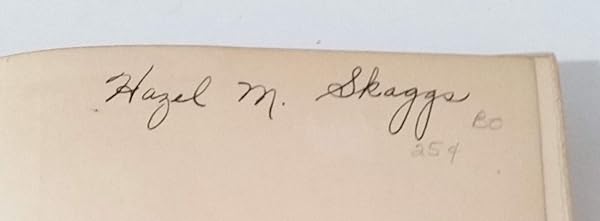 Hazel M. Skaggs
BO
25¢